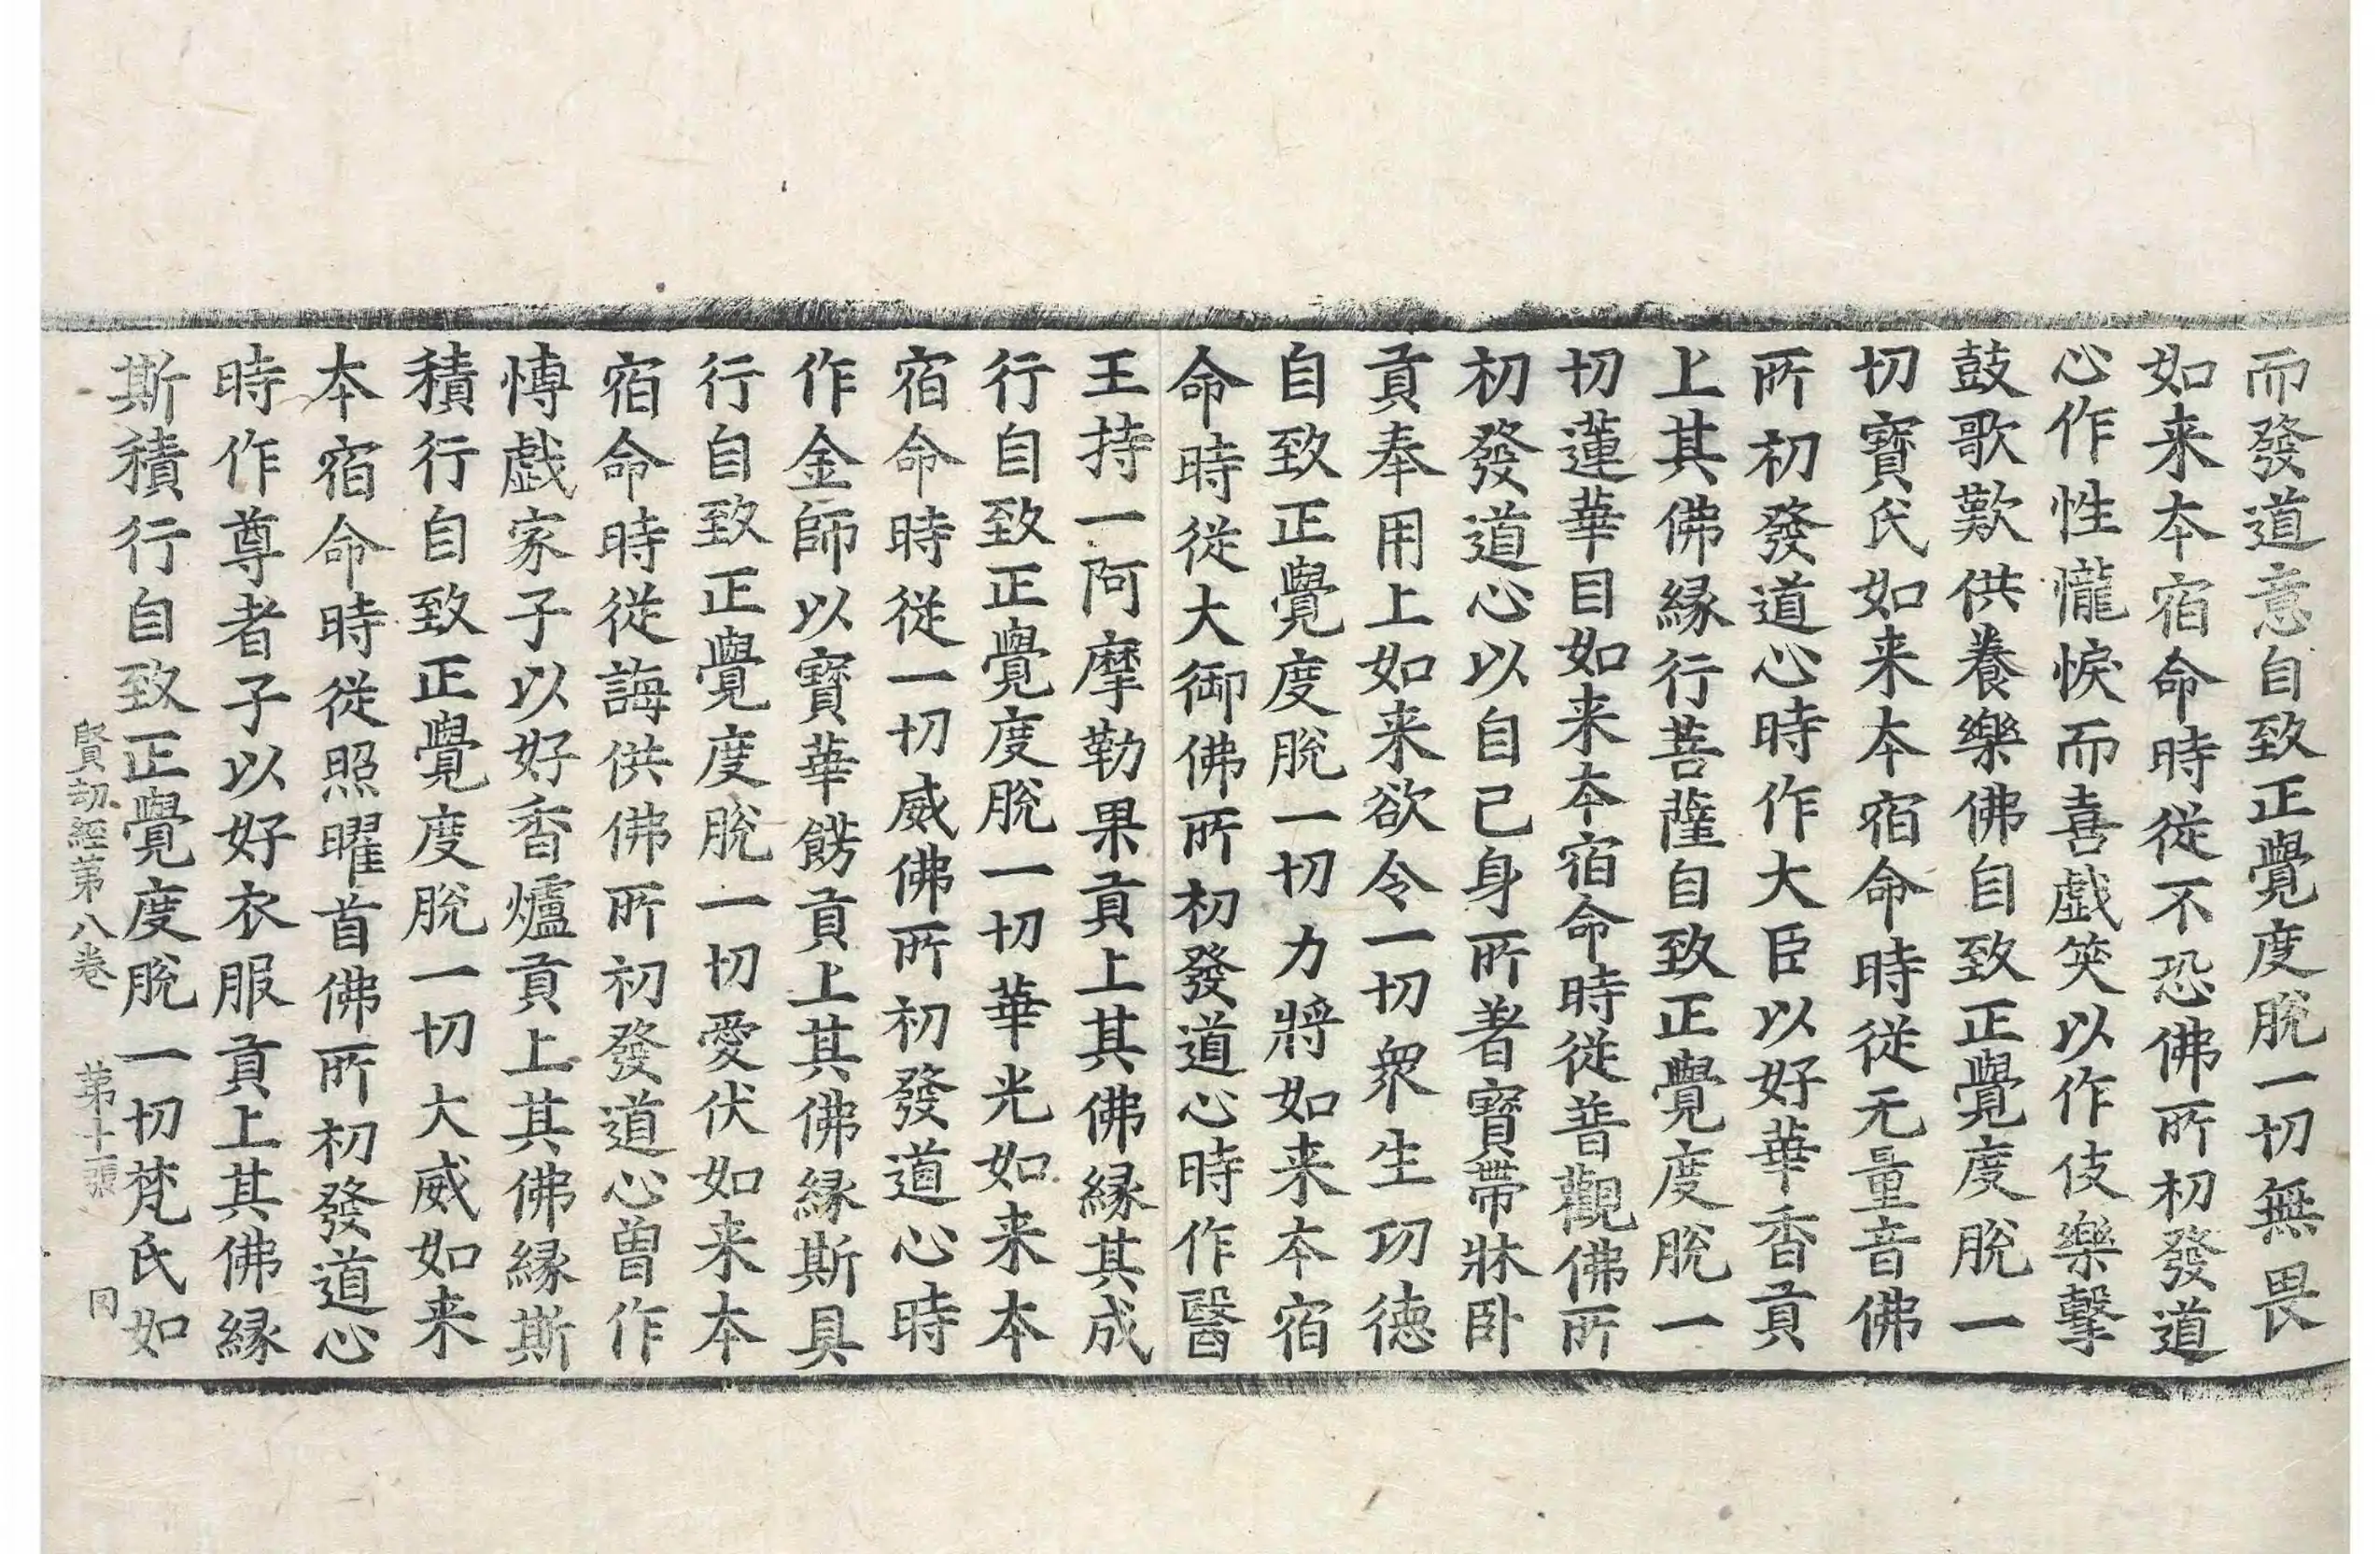 而發道意自致正覺度脫一切無畏
如来夲宿命時從不恐佛所初發道
心作性㦕悷而喜戯笑以作伎樂擊
鼓歌歎供養樂佛自致正覺度脫一
切寳氏如来夲宿命時從无量音佛
所初發道心時作大臣以好華香貢
上其佛縁行菩薩自致正覺度脫一
切蓮華目如来夲宿命時從普觀佛所
初發道心以自己身所著寳帶牀卧
貢奉用上如来欲令一切衆生㓛德
自致正覺度脫一切力將如来夲宿
命時從大御佛所初發道心時作醫
王持一阿摩勒果貢上其佛縁其成
行自致正覺度脫一切華光如来夲
宿命時從一切威佛所初發道心時
作金師以寳華餝貢上其佛縁斯具
行自致正覺度脫一切愛伏如来夲
宿命時從誨供佛所初發道心曽作
愽戯家子以好香爐貢上其佛縁斯
積行自致正覺度脫一切大威如来
夲宿命時從照曜首佛所初發道心
時作尊者子以好衣服貢上其佛縁
斯積行自致正覺度脫一切梵氏如
賢劫經第八卷 第十張 同